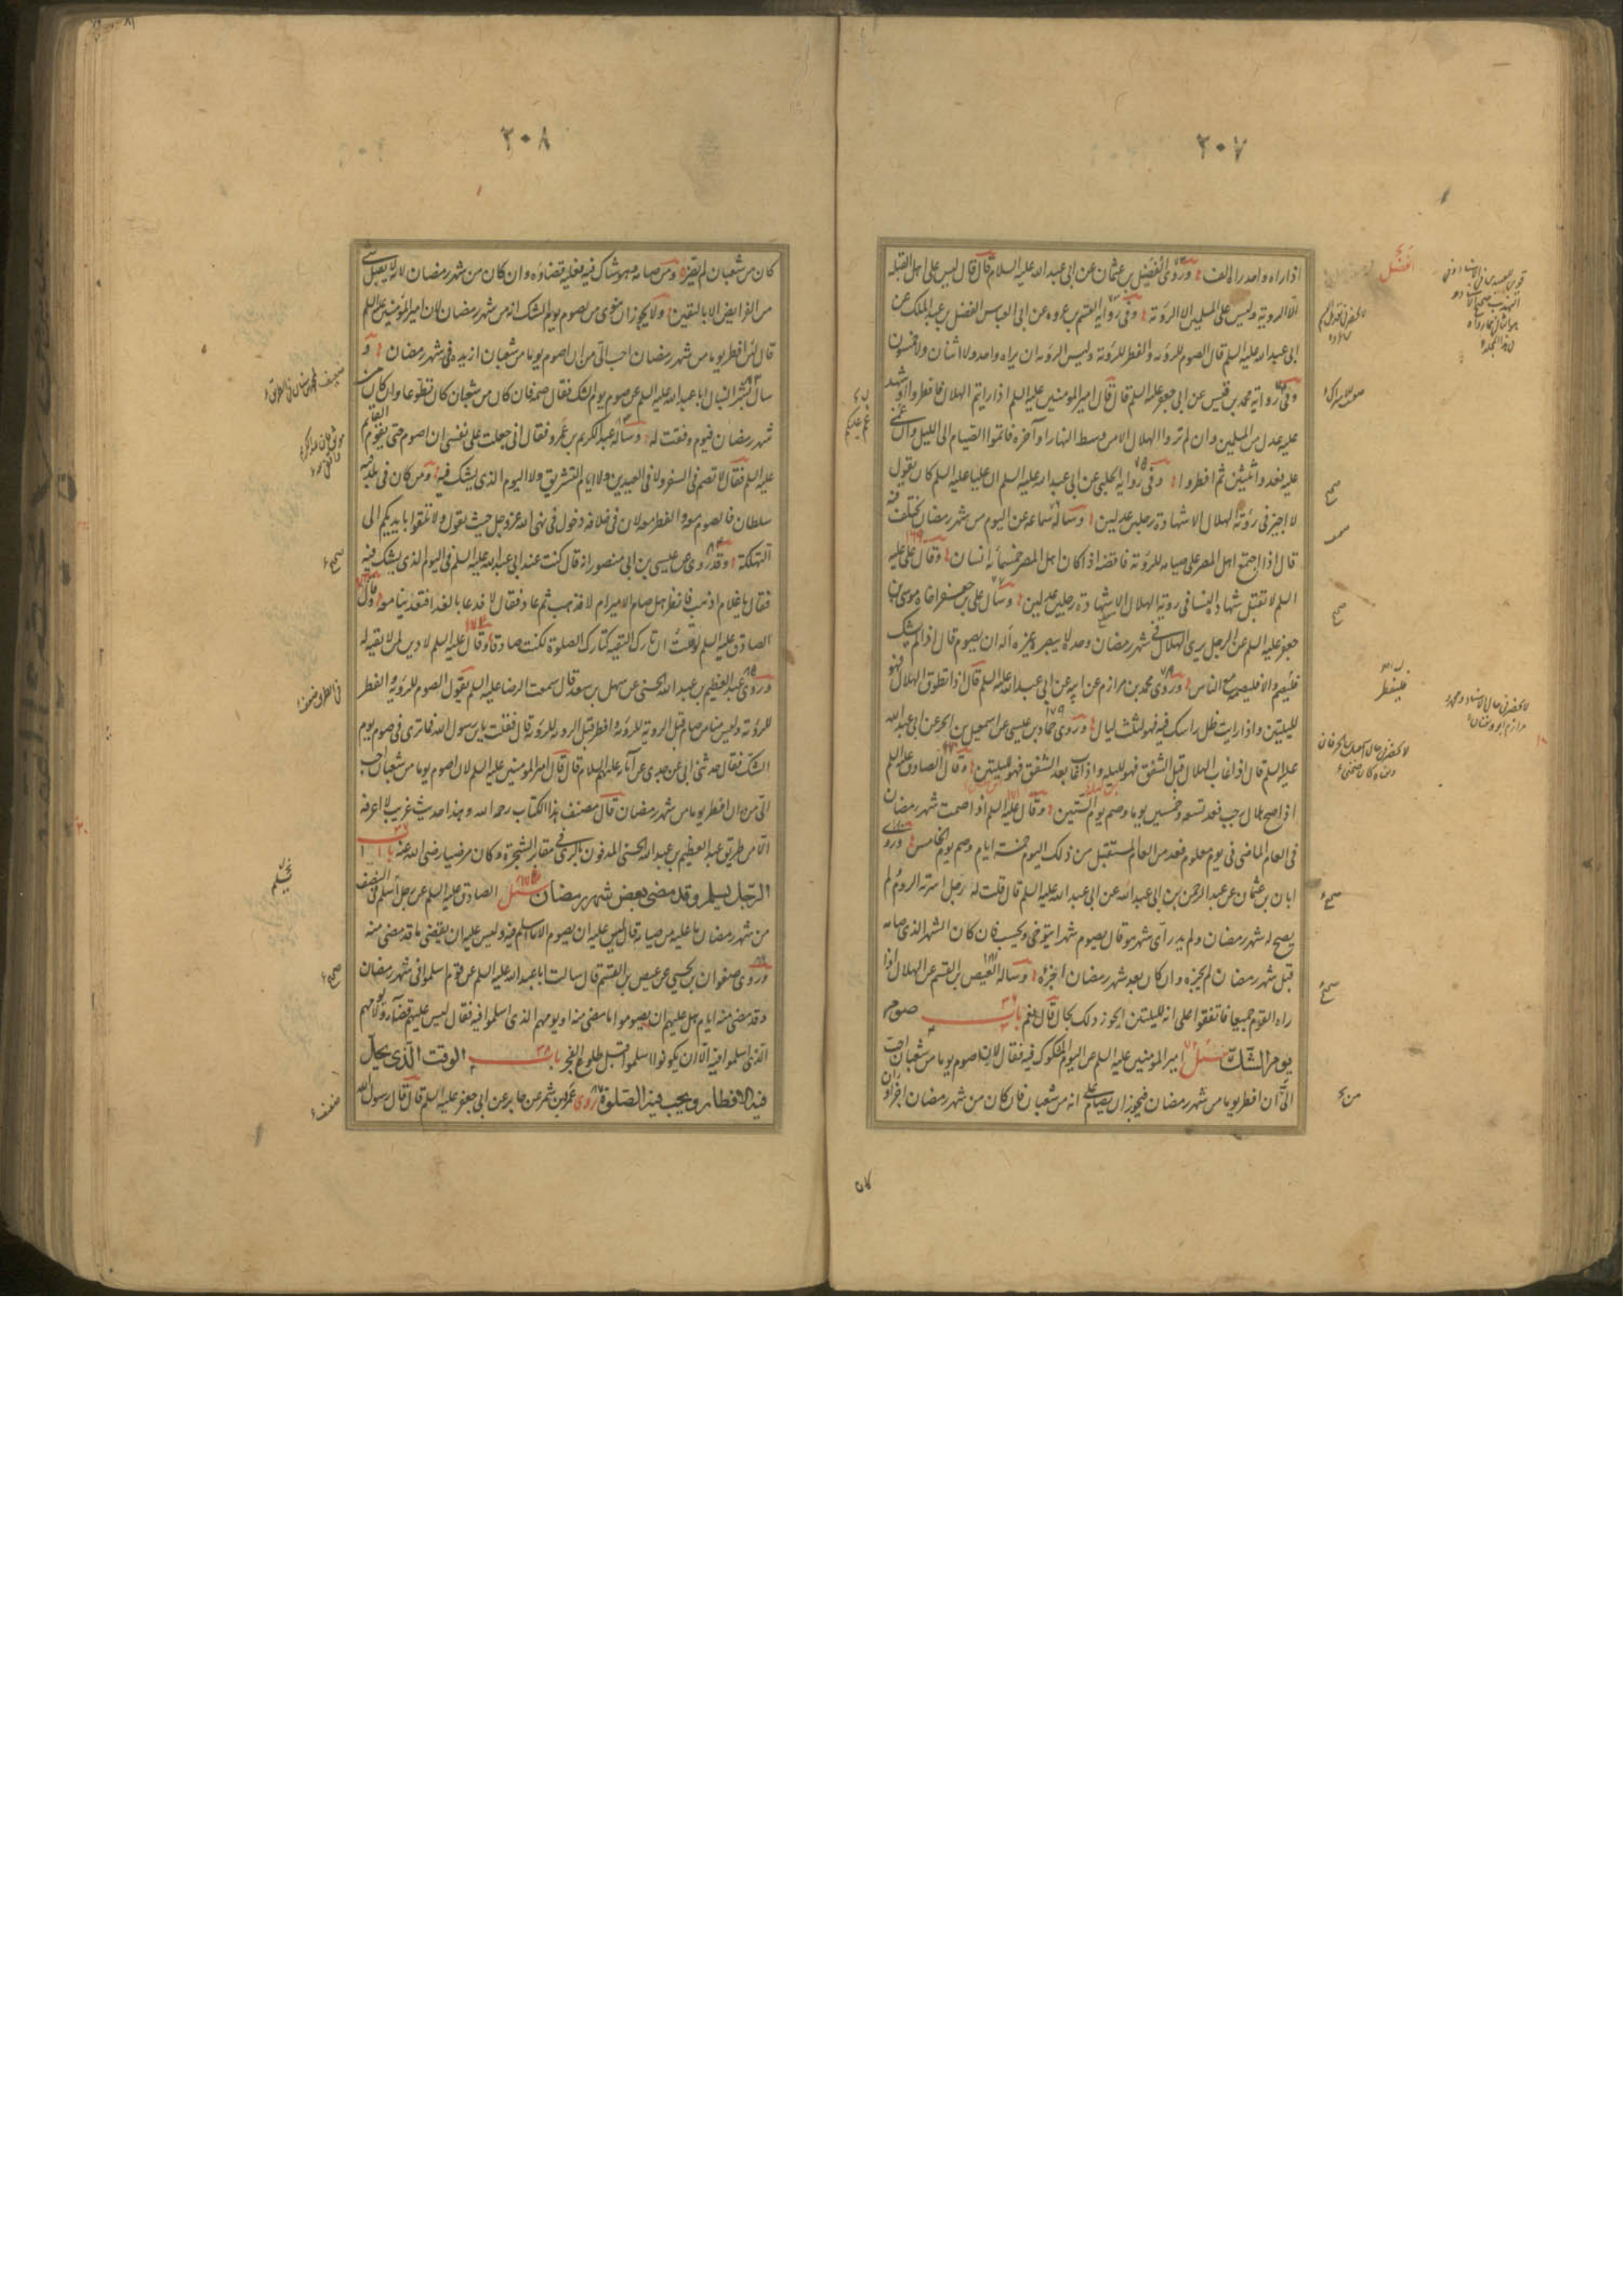 ٢٠٧
اذا راه واحد راه الف وروى الفضيل بن عثمان عن ابى عبد الله عليه السلام قال قال ليس على اهل القبلة
الا الروية وليس على المسلمين الا الروية وفى رواية القسم بن عروه عن ابى العباس الفضل بن عبد الملك عن
ابى عبد الله عليه السلم قال الصوم للروية والفطر للروية وليس الروية ان يراه واحد ولا اثنان ولا خمسون
وفى رواية محمد بن قيس عن ابى جعفر عليه السلم قال قال امير المومنين عليه السلم اذا رايتم الهلال فافطروا او شهد
عليه عدل من المسلمين وان لم تروا الهلال الا من وسط النهار او آخره فاتموا الصيام الى الليل وان غم
عليكم فعدوا ثلثين ثم افطروا وفى رواية الحلبى عن ابى عبد الله عليه السلم ان عليا عليه السلم كان يقول
لا اجيز فى رؤية الهلال الا شهادة رجلين عدلين وساله سماعه عن اليوم من شهر رمضان يختلف فيه
قال اذا اجتمع اهل المصر على صيامه للروية فاقضه اذا كان اهل المصر خمسمائة انسان وقال على عليه
السلم لا تقبل شهادة النسا فى روية الهلال الا شهادة رجلين عدلين وسال على بن جعفر اخاه موسى بن
جعفر عليه السلم عن الرجل يرى الهلال فى شهر رمضان وحده لا يبصره غيره أله ان يصوم قال اذا لم يشك
فليصم والا فليصم مع الناس وروى محمد بن مرازم عن ابيه عن ابى عبد الله عليه السلم قال اذا تطوق الهلال فهو
لليلتين واذا رايت ظل راسك فيه فهو لثلث ليال وروى حماد بن عيسى عن اسمعيل بن الحر عن ابى عبد الله
عليه السلم قال اذا غاب الهلال قبل الشفق فهو لليله واذا غاب بعد الشفق فهو لليلتين وقال الصادق عليه السلم
اذا صح هلال رجب فعد تسعه وخمسين يوما وصم يوم الستين وقال عليه السلم اذا صمت شهر رمضان
فى العام الماضى فى يوم معلوم فعد من العام المستقبل من ذلك اليوم خمسة ايام وصم يوم الخامس وروى
ابان بن عثمان عن عبد الرحمن بن ابى عبد الله عن ابى عبد الله عليه السلم قال قلت له رجل اسرته الروم ولم
يصح له شهر رمضان ولم يدر اى شهر هو قال يصوم شهرا يتوخى ويحسب فان كان الشهر الذى صامه
قبل شهر رمضان لم يجزه وان كان بعد شهر رمضان اجزءه وساله العيص بن القسم عن الهلال اذا
راه القوم جميعا فاتفقوا على انه لليلتين ايجوز ذلك قال نعم باب صوم
يوم الشك سئل امير المومنين عليه السلم عن اليوم المشكوك فيه فقال لان اصوم يوما من شعبان احب
الى ان افطر يوما من شهر رمضان فيجوز ان يصام على انه من شعبان فان كان من شهر رمضان اجزاه وان
٢٠٨
كان من شعبان لم يضره ومن صامه وهو شاك فيه فعليه قضاؤه وان كان من شهر رمضان لانه لا يقبل شى
من الفرايض الا باليقين ولا يجوز ان ينوى من يصوم يوم الشك انه من شهر رمضان لان امير المومنين عليه السلم
قال لئن افطر يوما من شهر رمضان احب الى من ان اصوم يوما من شعبان ازيده فى شهر رمضان و
سال بشر النبال ابا عبد الله عليه السلم عن صوم يوم الشك فقال صمه فان كان من شعبان كان تطوعا وان كان من
شهر رمضان فيوم وفقت له وساله عبد الكريم بن عمرو فقال انى جعلت على نفسى ان اصوم حتى يقوم القايم
عليه السلم فقال لا تصم فى السفر ولا فى العيدين ولا ايام التشريق ولا اليوم الذى يشك فيه ومن كان فى بلد فيه
سلطان فالصوم معه والفطر معه لان فى خلافه دخول فى نهى الله عز وجل حيث يقول ولا تلقوا بايديكم الى
التهلكة وقد روى عن عيسى بن ابى منصور انه قال كنت عند ابى عبد الله عليه السلم فى اليوم الذى يشك فيه
فقال يا غلام اذهب فانظر هل صام الامير ام لا فذهب ثم عاد فقال لا فدعا بالغدا فتغدينا معه وقال
الصادق عليه السلم لو قلت ان تارك التقيه كتارك الصلوة لكنت صادقا وقال عليه السلم لا دين لمن لا تقيه له
وروى عبد العظيم بن عبد الله الحسنى عن سهل بن سعد قال سمعت الرضا عليه السلم يقول الصوم للروية والفطر
للروية وليس منا من صام قبل الروية للروية وافطر قبل الروية للروية قال فقلت يابن رسول الله فما ترى فى صوم يوم
الشك فقال حدثنى ابى عن جدى عن آبائه عليهم السلام قال قال امير المومنين عليه السلم لان اصوم يوما من شعبان احب
الى من ان افطر يوما من شهر رمضان قال مصنف هذا الكتاب رحمه الله وهذا حديث غريب لا اعرفه
الا من طريق عبد العظيم بن عبد الله الحسنى المدفون بالرى فى مقابر الشجرة وكان مرضيا رضى الله عنه باب
الرجل يسلم وقد مضى بعض شهر رمضان سئل الصادق عليه السلم عن رجل اسلم فى النصف
من شهر رمضان ما عليه من صيامه قال ليس عليه ان يصوم الا ما اسلم فيه وليس عليه ان يقضى ما قد مضى منه
وروى صفوان بن يحيى عن عيص بن القسم قال سالت ابا عبد الله عليه السلم عن قوم اسلموا فى شهر رمضان
وقد مضى منه ايام هل عليهم ان يصوموا ما مضى منه او يومهم الذى اسلموا فيه فقال ليس عليهم قضاء ولا يومهم
الذى اسلموا فيه الا ان يكونوا اسلموا قبل طلوع الفجر باب الوقت الذى يحل
فيه الافطار ويجب فيه الصلوة روى عمرو بن شمر عن جابر عن ابى جعفر عليه السلم قال قال رسول الله